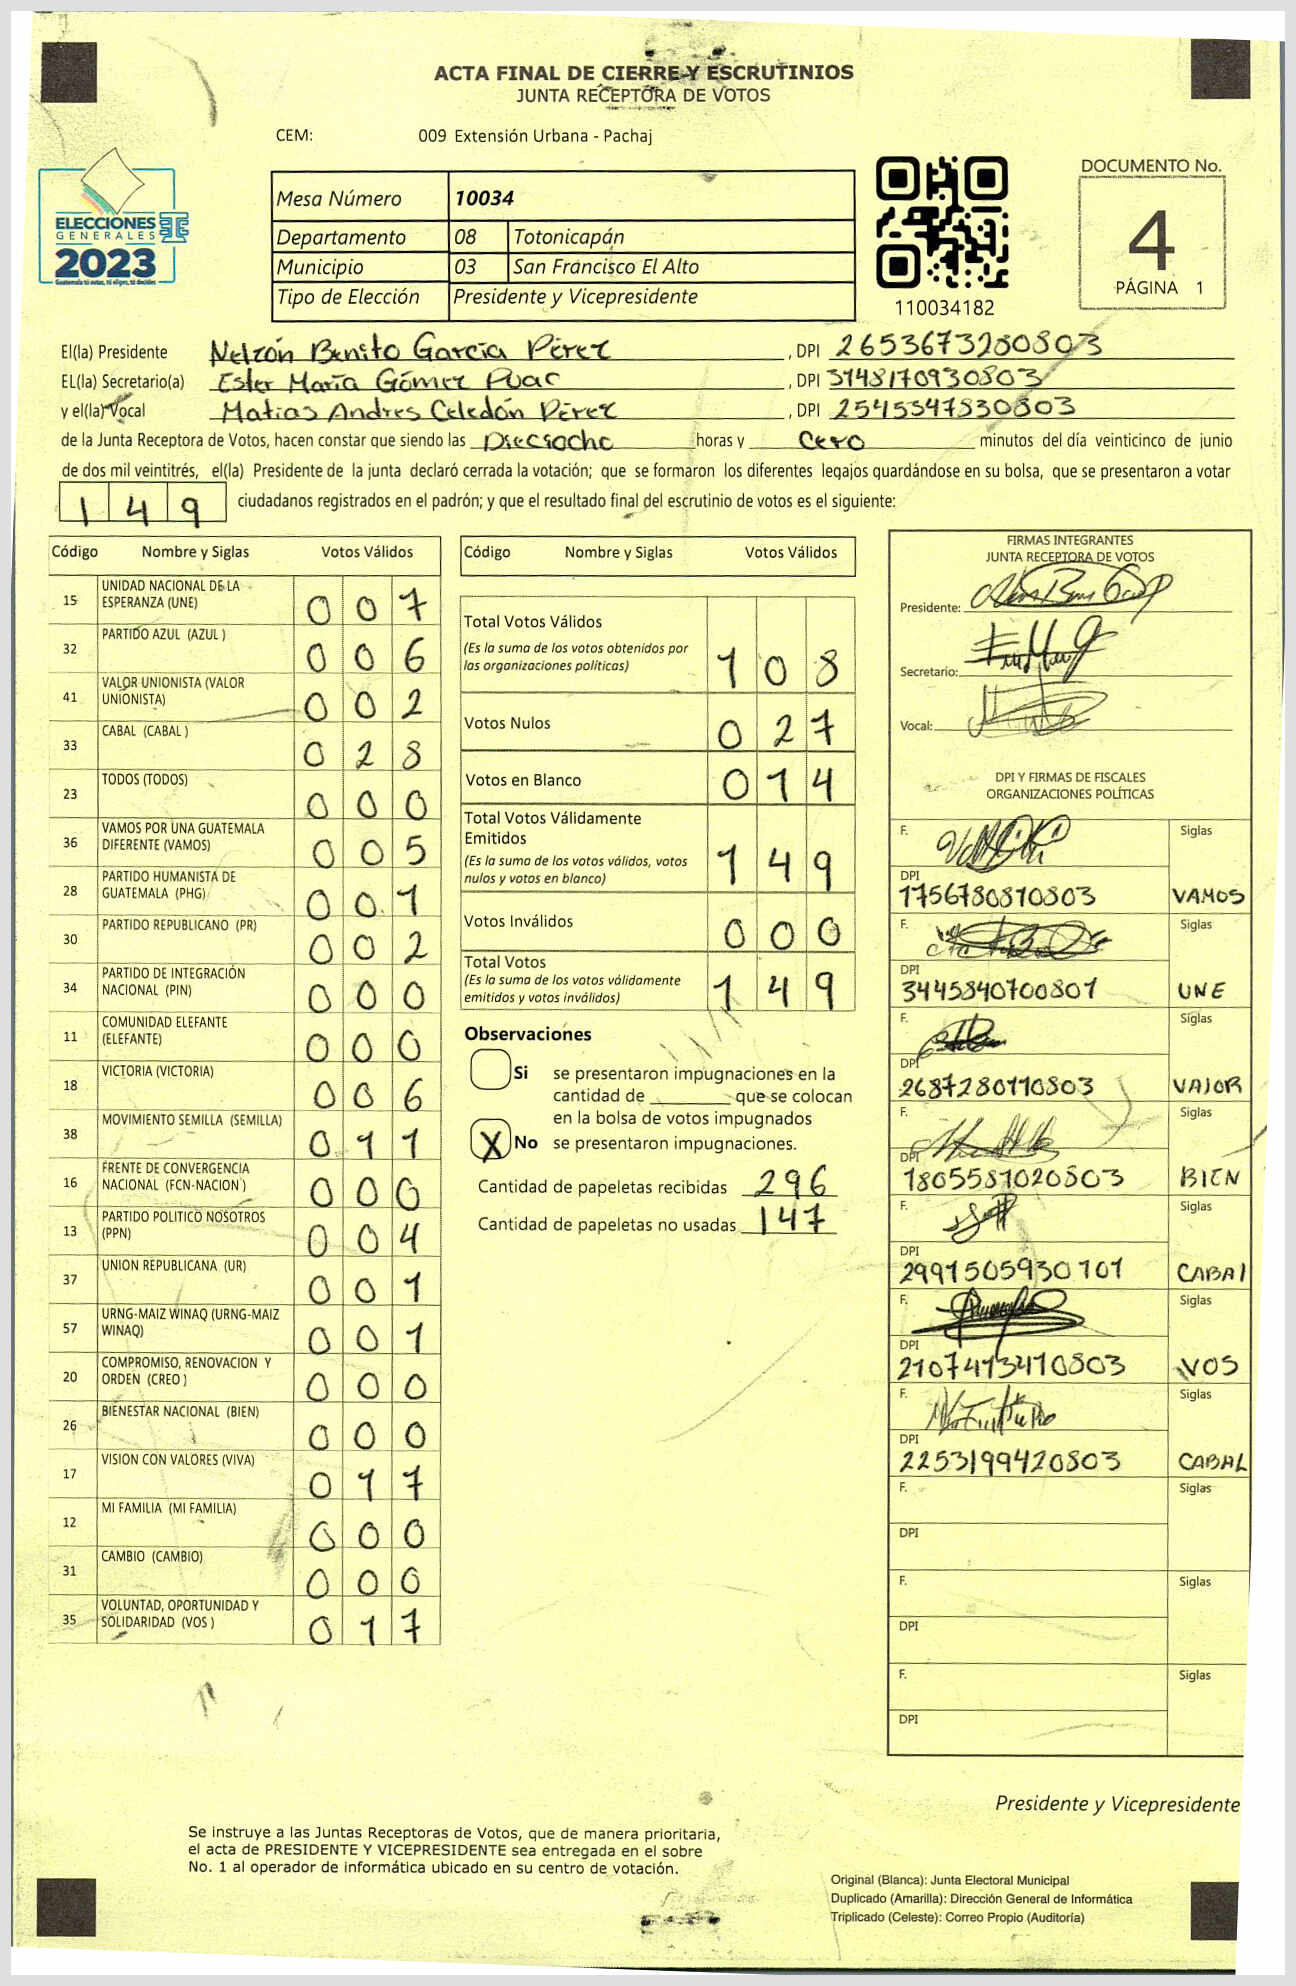 ACTA FINAL DE CIERRE Y ESCRUTINIOS
JUNTA RECEPTORA DE VOTOS
CEM: 009 Extensión Urbana - Pachaj
ELECCIONES
GENERALES
2023
Guatemala tú votas, tú eliges, tú decides
Mesa Número 10034
Departamento 08 Totonicapán
Municipio 03 San Francisco El Alto
Tipo de Elección Presidente y Vicepresidente
110034182
DOCUMENTO No.
4
PÁGINA 1
El(la) Presidente Nelzón Benito García Pérez, DPI 2653673280803
EL(la) Secretario(a) Ester María Gómez Puac, DPI 3148170930803
y el(la) Vocal Matias Andres Celedón Pérez, DPI 2545547830803
de la Junta Receptora de Votos, hacen constar que siendo las Dieciocho horas y Cero minutos del día veinticinco de junio
de dos mil veintitrés, el(la) Presidente de la junta declaró cerrada la votación; que se formaron los diferentes legajos guardándose en su bolsa, que se presentaron a votar
149 ciudadanos registrados en el padrón; y que el resultado final del escrutinio de votos es el siguiente:
Código Nombre y Siglas Votos Válidos
15 UNIDAD NACIONAL DE LA ESPERANZA (UNE) 007
32 PARTIDO AZUL (AZUL ) 006
41 VALOR UNIONISTA (VALOR UNIONISTA) 002
33 CABAL (CABAL ) 028
23 TODOS (TODOS) 000
36 VAMOS POR UNA GUATEMALA DIFERENTE (VAMOS) 005
28 PARTIDO HUMANISTA DE GUATEMALA (PHG) 001
30 PARTIDO REPUBLICANO (PR) 002
34 PARTIDO DE INTEGRACIÓN NACIONAL (PIN) 000
11 COMUNIDAD ELEFANTE (ELEFANTE) 000
18 VICTORIA (VICTORIA) 006
38 MOVIMIENTO SEMILLA (SEMILLA) 011
16 FRENTE DE CONVERGENCIA NACIONAL (FCN-NACION ) 000
13 PARTIDO POLITICO NOSOTROS (PPN) 004
37 UNION REPUBLICANA (UR) 001
57 URNG-MAIZ WINAQ (URNG-MAIZ WINAQ) 001
20 COMPROMISO, RENOVACION Y ORDEN (CREO ) 000
26 BIENESTAR NACIONAL (BIEN) 000
17 VISION CON VALORES (VIVA) 017
12 MI FAMILIA (MI FAMILIA) 000
31 CAMBIO (CAMBIO) 000
35 VOLUNTAD, OPORTUNIDAD Y SOLIDARIDAD (VOS ) 017
Código Nombre y Siglas Votos Válidos
Total Votos Válidos
(Es la suma de los votos obtenidos por
las organizaciones políticas) 108
Votos Nulos 027
Votos en Blanco 014
Total Votos Válidamente
Emitidos
(Es la suma de los votos válidos, votos
nulos y votos en blanco) 149
Votos Inválidos 000
Total Votos
(Es la suma de los votos válidamente
emitidos y votos inválidos) 149
Observaciones
Si se presentaron impugnaciones en la
cantidad de ________ que se colocan
en la bolsa de votos impugnados
X No se presentaron impugnaciones.
Cantidad de papeletas recibidas 296
Cantidad de papeletas no usadas 147
FIRMAS INTEGRANTES
JUNTA RECEPTORA DE VOTOS
Presidente:
Secretario:
Vocal:
DPI Y FIRMAS DE FISCALES
ORGANIZACIONES POLÍTICAS
F. Siglas
DPI
1756780810803 VAMOS
F. Siglas
DPI
3445840700801 UNE
F. Siglas
DPI
2687280110803 VAJOR
F. Siglas
DPI
1805581020803 BIEN
F. Siglas
DPI
2991505930101 CABAl
F. Siglas
DPI
2107413410803 VOS
F. Siglas
DPI
2253199420803 CABAL
F. Siglas
DPI
F. Siglas
DPI
F. Siglas
DPI
Presidente y Vicepresidente
Se instruye a las Juntas Receptoras de Votos, que de manera prioritaria,
el acta de PRESIDENTE Y VICEPRESIDENTE sea entregada en el sobre
No. 1 al operador de informática ubicado en su centro de votación.
Original (Blanca): Junta Electoral Municipal
Duplicado (Amarilla): Dirección General de Informática
Triplicado (Celeste): Correo Propio (Auditoría)